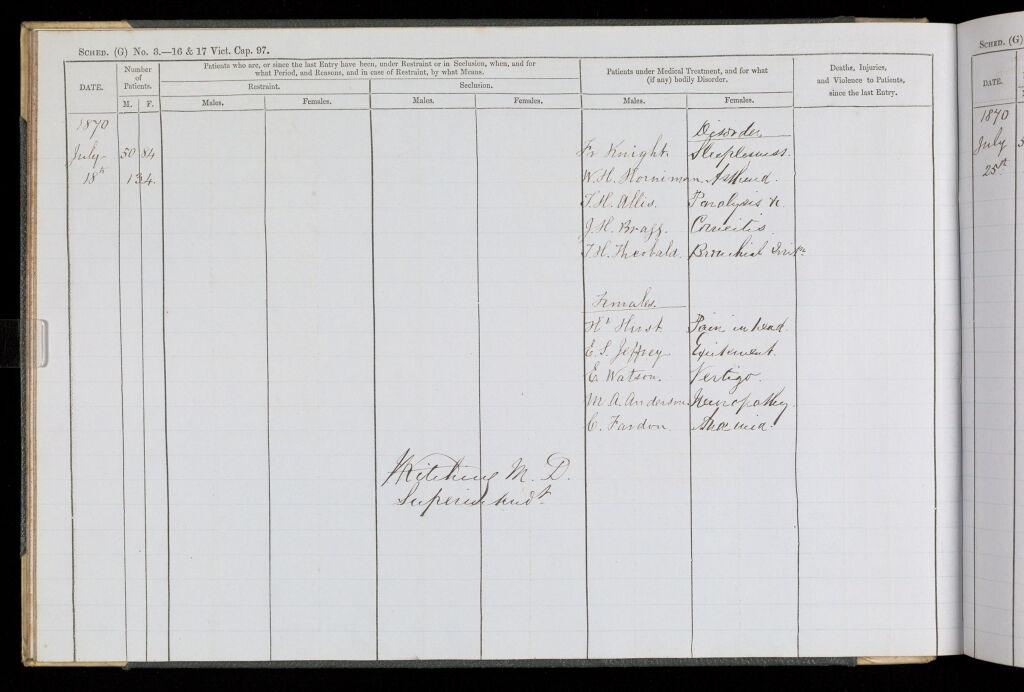 SCHED. (G) No. 3.—16 & 17 Vict. Cap. 97.
DATE.
Number of Patients.
M. F.
Patients who are, or since the last Entry have been, under Restraint or in Seclusion, when, and for
what Period, and Reasons, and in case of Restraint, by what Means.
Restraint.
Seclusion.
Males. Females. Males. Females.
Patients under Medical Treatment, and for what
(if any) bodily Disorder.
Males. Females.
Deaths, Injuries,
and Violence to Patients,
since the last Entry.
1870
Disorder
July 50 84 Fr Knight. Sleeplessness.
18th 134. W. H. Horniman
T. H. Allis. Paralysis &c
J. H. Bragg.
T. H. Theobald.
Females.
Ht Hurst Pain in head.
E. S. Jeffrey Excitement.
E. Watson. Vertigo.
M. A. Anderson
C. Fardon.
Kitching M. D.
Superintendt.
SCHED. (G)
DATE.
1870
July
25